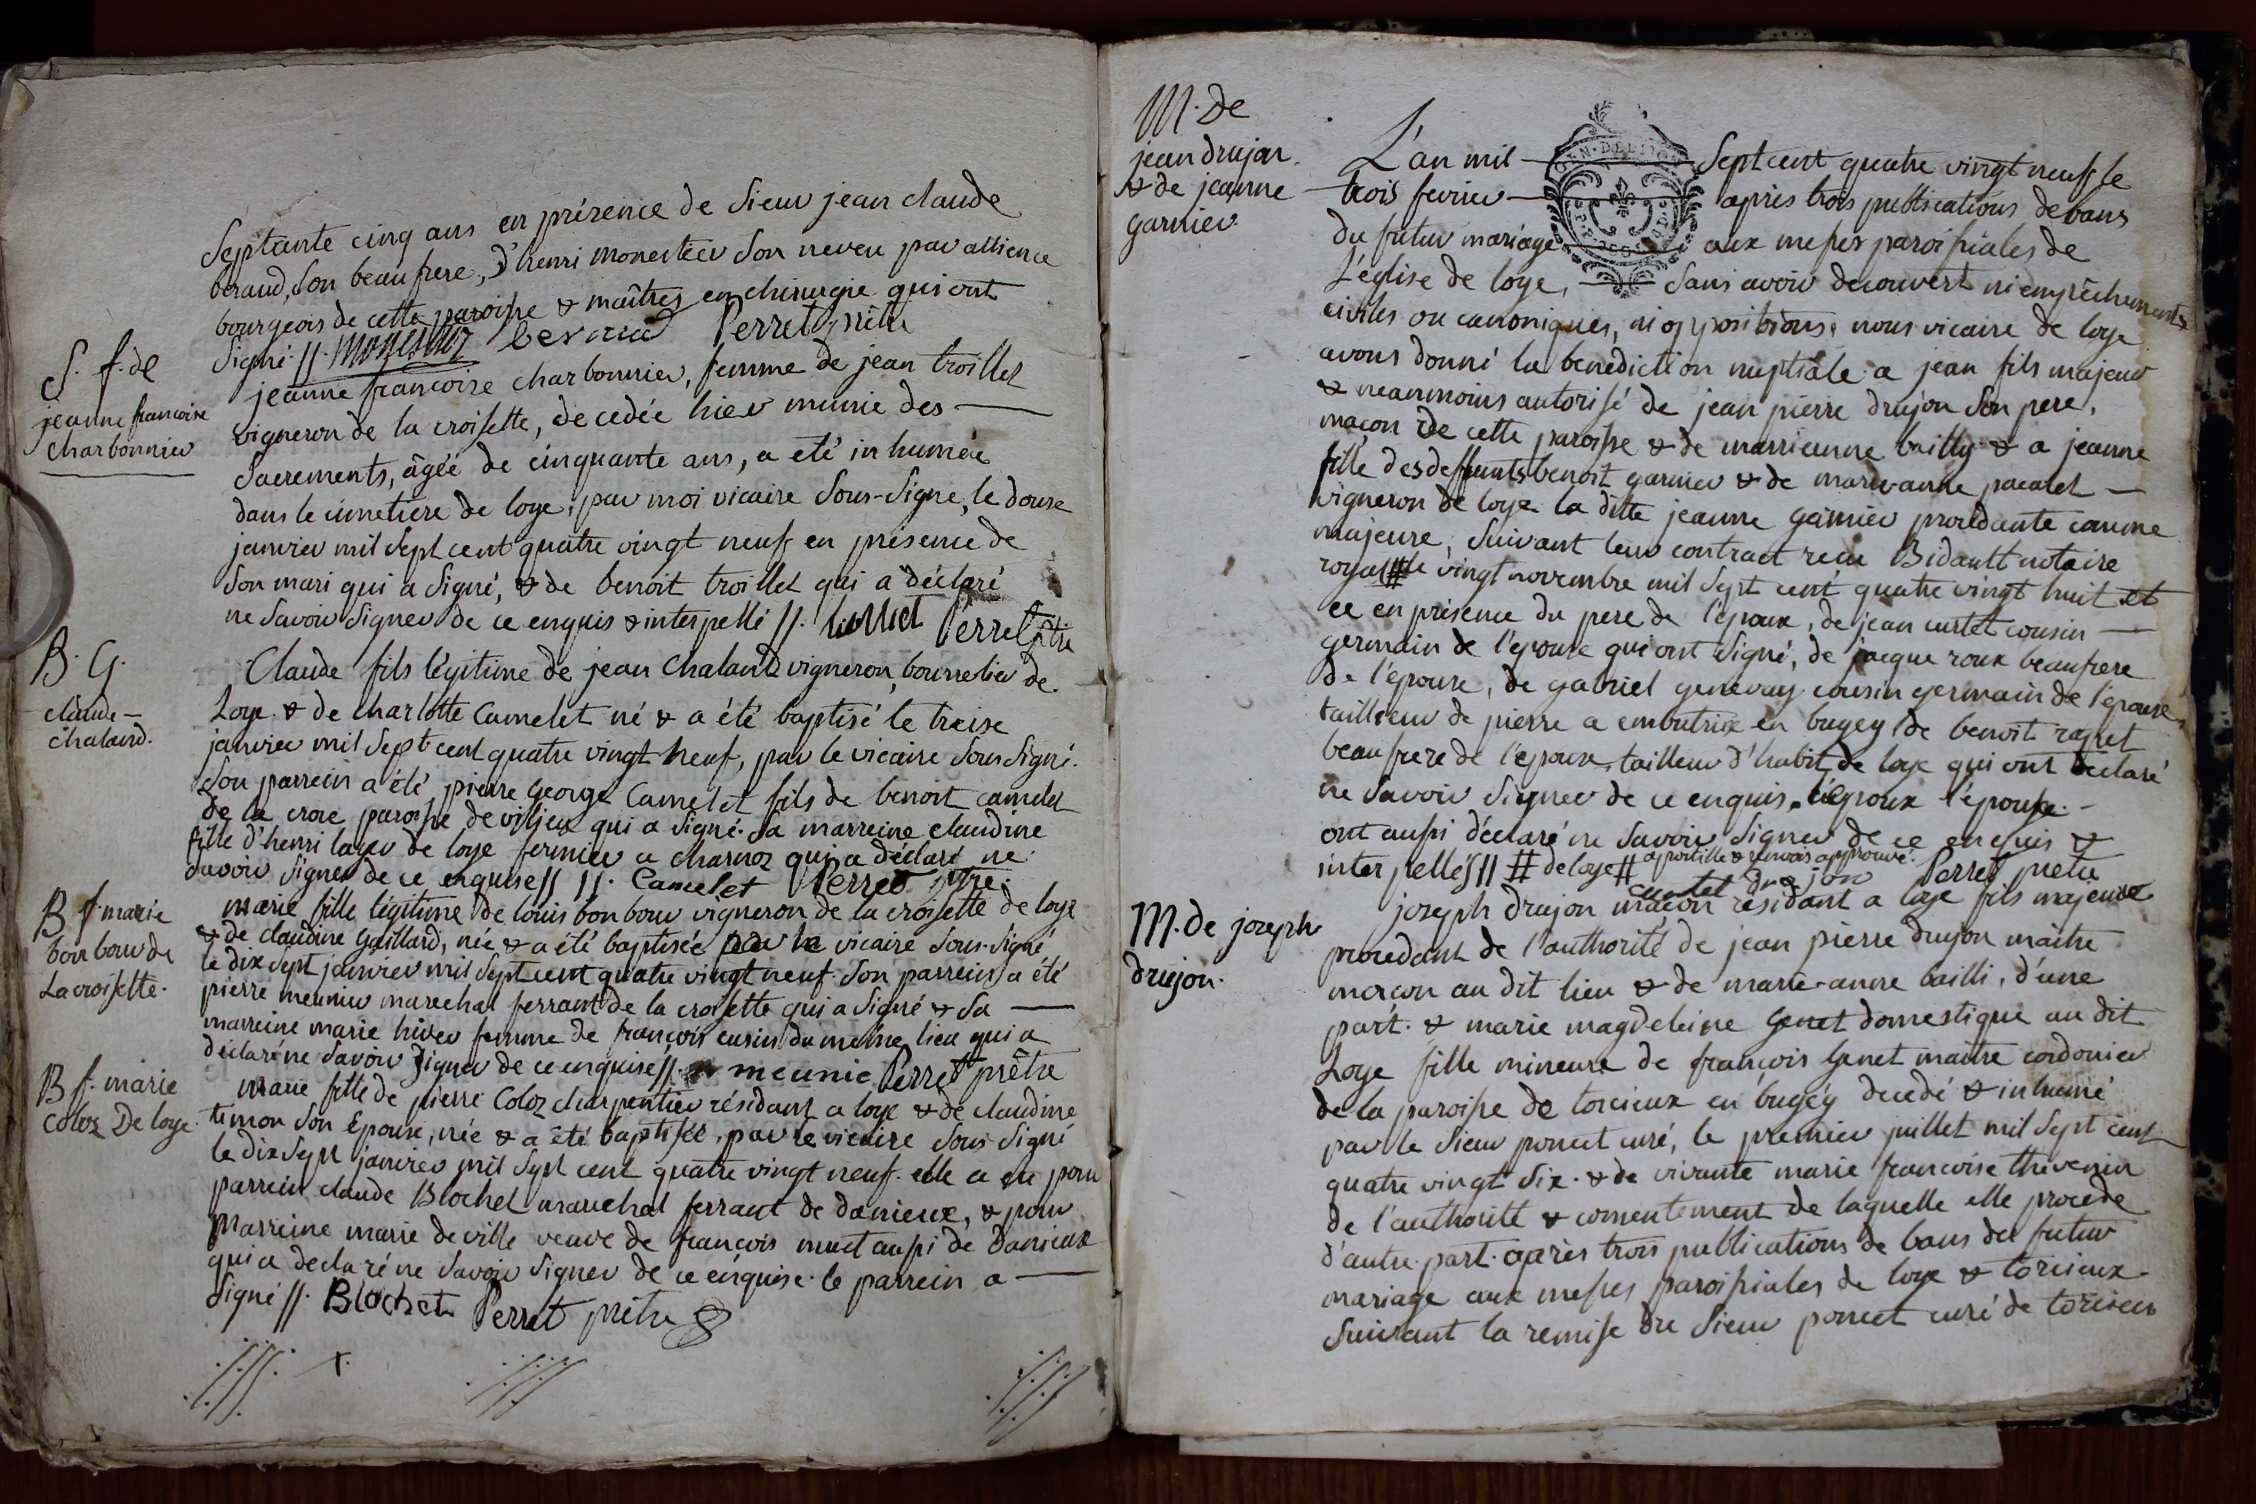 septante cinq ans en présence de sieur jean claude
beraud, son beaufrere, d'henri monestier son neveu par allience
bourgeois de cette paroisse & maîtres en chirurgie qui ont
signé //. monestier beraud Perret prêtre
S. f. de
jeanne francoise
charbonnier
jeanne francoise charbonnier, femme de jean troillet
vigneron de la croisette, decedée hier munie des
sacrements, âgée de cinquante ans, a eté inhumée
dans le cimetiere de loye, par moi vicaire sous-signe, le douze
janvier mil sept cent quatre vingt neuf en présence de
son mari qui a signé, & de benoit troillet qui a déclaré
ne savoir signer de ce enquis & interpellé //. troillet Perret ptre
B. G.
claude
chaland.
Claude fils légitime de jean chaland vigneron, bourrelier de
Loye & de charlotte Camelet né & a été baptisé le treise
janvier mil sept cent quatre vingt neuf, par le vicaire sous signé.
son parrein a été pierre george Camelet fils de benoit camelet
de la croze paroisse de villieux qui a signé. sa marreine claudine
fille d'henri layer de loye fermier a charnoz qui a déclaré ne
savoir signer de ce enquise // //. Camelet Perret ptre.
B f. marie
bon bour de
La croisette.
marie fille légitime de louis bon bour vigneron de la croisette de loye
& de claudine gaillard, née & a été baptisée par le vicaire sous-signé
le dix sept janvier mil sept cent quatre vingt neuf. son parrein a été
pierre meunier marechal ferrant de la croisette qui a signé & sa
marreine marie hiver femme de françois cusin du même lieu qui a
déclaré ne savoir signer de ce enquise //. meunie Perret prêtre
B f. marie
Coloz De loye.
marie fille de pierre Coloz charpentier résidant a loye & de claudine
timon son Epouse, née & a été baptisée, par le vicaire sous-signé
le dix sept janvier mil sept cent quatre vingt neuf. elle a eu pour
parrein claude Blochet marechal ferrant de danieux, & pour
marreine marie deville veuve de francois muet aussi de danieux
qui a declaré ne savoir signer de ce enquise. le parrein a
signé //. Blochet Perret prêtre
M. de
jean drujon
& de jeanne
garnier
L'an mil sept cent quatre vingt neuf le
trois fevrier après trois publications de bans
du futur mariage aux messes paroissiales de
L'église de loye, sans avoir decouvert ni empêchements
civiles ou canoniques, ni oppositions, nous vicaire de loye
avons donné la benediction nuptiale a jean fils majeur
& neanmoins autorisé de jean pierre drujon son pere,
maçon de cette paroisse & de marrienne bailly & a jeanne
fille des deffunts benoit garnier & de marie anne pacalet
vigneron de loye la ditte jeanne garnier procedante comme
majeure, suivant leur contract recu Bidault notaire
royal # le vingt novembre mil sept cent quatre vingt huit et
ce en présence du pere de l'époux, de jean curtet cousin
germain de l'epouse qui ont signé, de jacque roux beaufrere
de l'épouse, de gabriel genevay cousin germain de l'épouse,
tailleur de pierre a emboutrix en bugey, de benoit rapet
beaufrere de l'epoux, tailleur d'habit de loye qui ont declaré
ne savoir signer de ce enquis. l'époux l'épouse
ont aussi déclaré ne savoir signer de ce enquis &
interpellés // # de loye # apostille & renvois approuvé.
curtet drujon Perret prêtre
M. de joseph
drujon.
joseph drujon macon residant a loye fils majeur
procedant de l'authorité de jean pierre drujon maître
maçon au dit lieu & de marie-anne bailli, d'une
part. & marie magdeleine genet domestique au dit
Loye fille mineure de françois genet maitre cordonier
de la paroisse de torcieux en bugey decedé & inhumé
par le sieur poncet curé, le premier juillet mil sept cent
quatre vingt six. & de vivante marie francoise thivenin
de l'authorité & consentement de laquelle elle procede
d'autre part. après trois publications de bans du futur
mariage aux messes paroissiales de loye & torcieux
suivant la remise du sieur poncet curé de torcieux